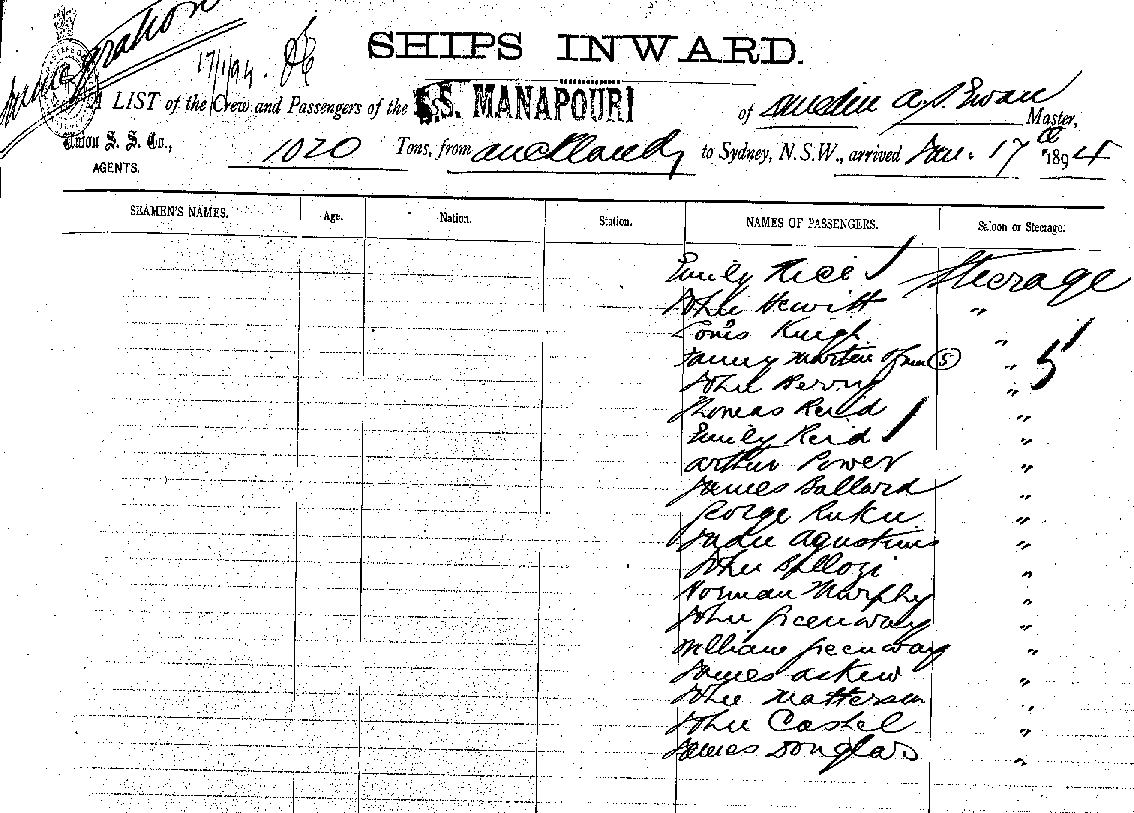 Immigration
17/1/94.
SHIPS INWARD.
A LIST of the Crew and Passengers of the S.S. MANAPOURI of Dunedin A. S. Ewan Master,
Union S. S. Co., AGENTS. 1020 Tons, from Auckland to Sydney, N.S.W., arrived Jan. 17th 1894
SEAMEN'S NAMES. Age. Nation. Station. NAMES OF PASSENGERS. Saloon or Steerage.
Emily Rice Steerage
John Hewitt "
Louis "
Fanny Martin 5 " 5
John Berry "
Thomas Reid "
Emily Reid "
Arthur Power "
James Ballard "
George "
"
John "
Norman Murphy "
John Greenway "
William Greenway "
James Askew "
John Matterson "
John Cashel "
James Douglas "